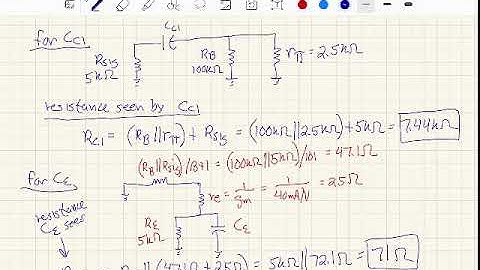 for Cc1
Cc1
Rsis
5kΩ
RB
100kΩ
rπ = 2.5kΩ
resistance seen by Cc1
Rc1 = (RB||rπ) + Rsis = (100kΩ||2.5kΩ)+5kΩ = 7.44kΩ
(RB||Rsis)/β+1 = (100kΩ||5kΩ)/101 = 47.1Ω
for CE
re = 1/gm = 1/40mA/V = 25Ω
resistance
CE sees
RE
5kΩ
CE
|| (47.1Ω + 25Ω) = 5kΩ||72.1Ω = 71Ω